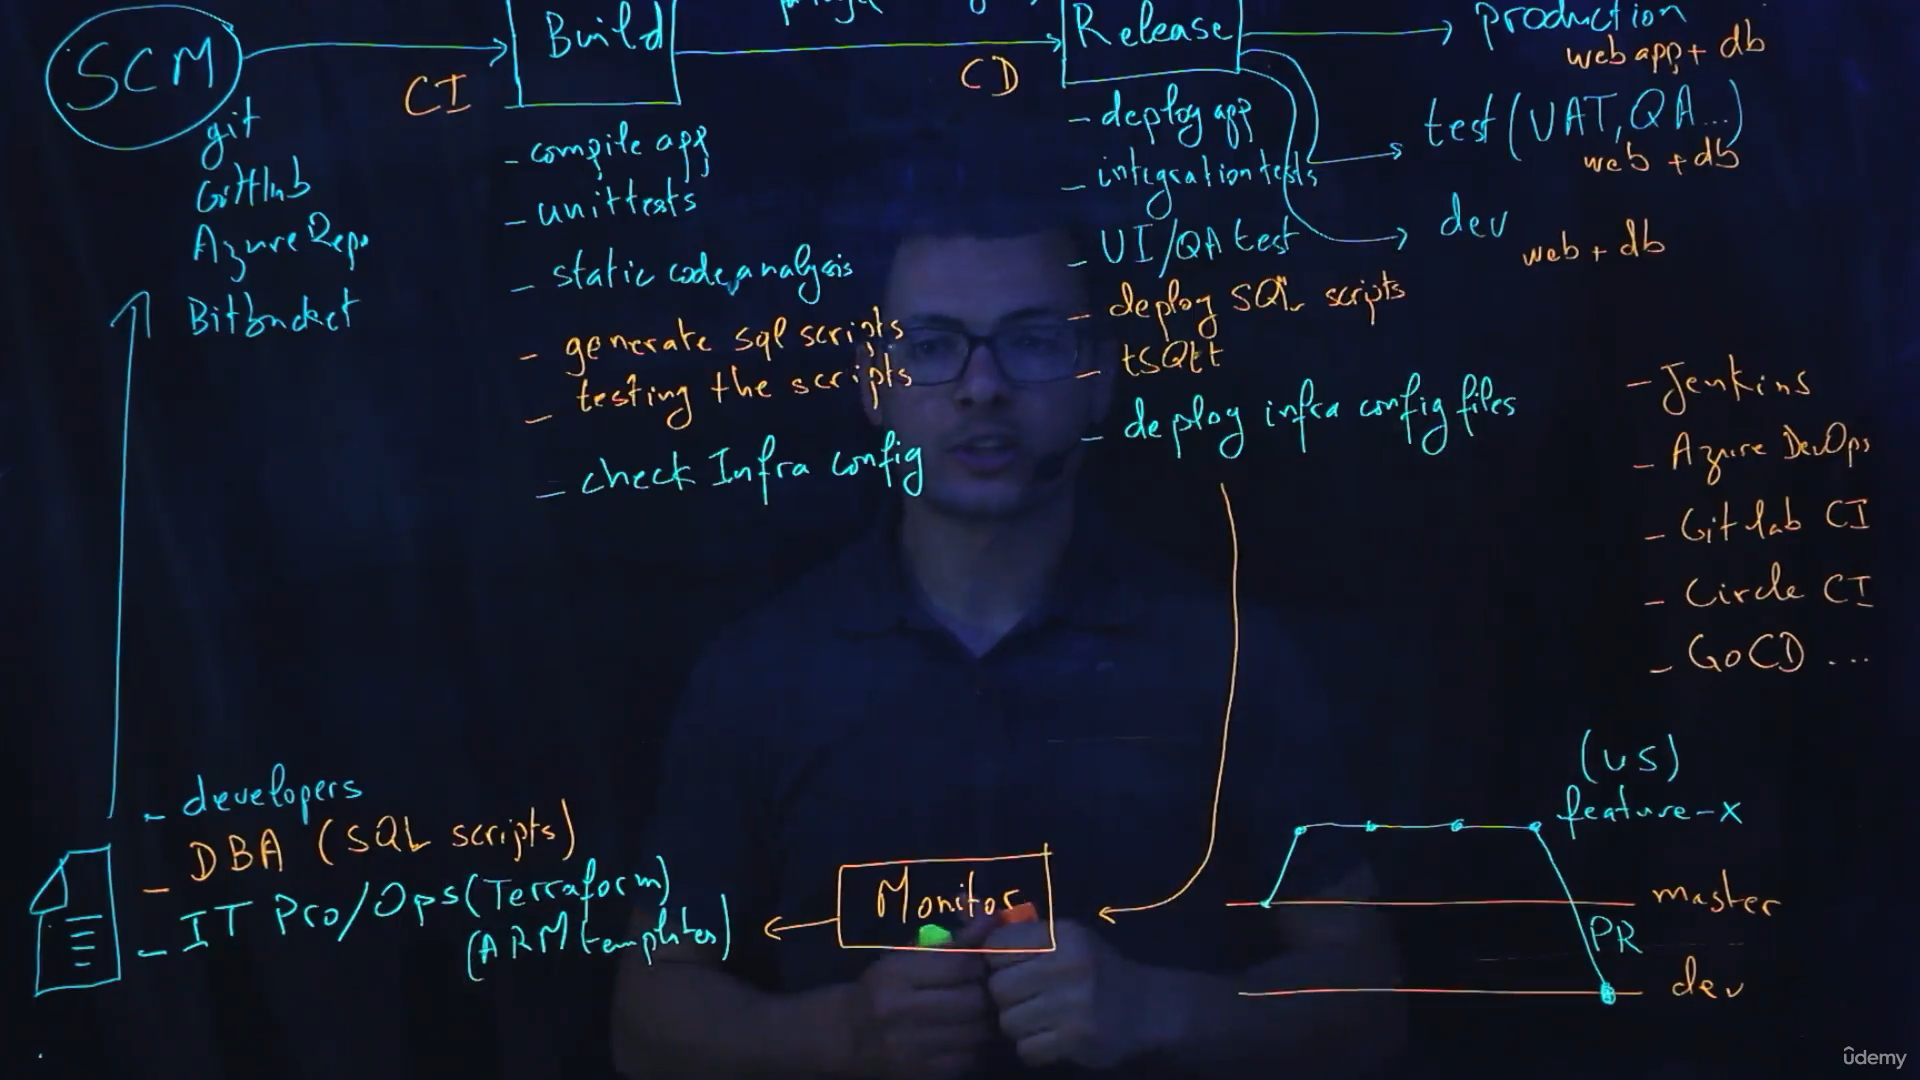 SCM
Build
Release
production
web app + db
CI
CD
git
GitHub
Azure Repo
Bitbucket
- compile app
- unittests
- static code analysis
- generate sql scripts
- testing the scripts
- check Infra config
- deploy app
- integration tests
- UI/QA test
- deploy SQL scripts
- tSQLt
- deploy infra config files
test (UAT, QA...)
web + db
dev
web + db
- Jenkins
- Azure DevOps
- Gitlab CI
- Circle CI
- GoCD ...
- developers
- DBA (SQL scripts)
- IT Pro/Ops (Terraform)
(ARM templates)
Monitor
(US)
feature-x
master
PR
dev
ûdemy